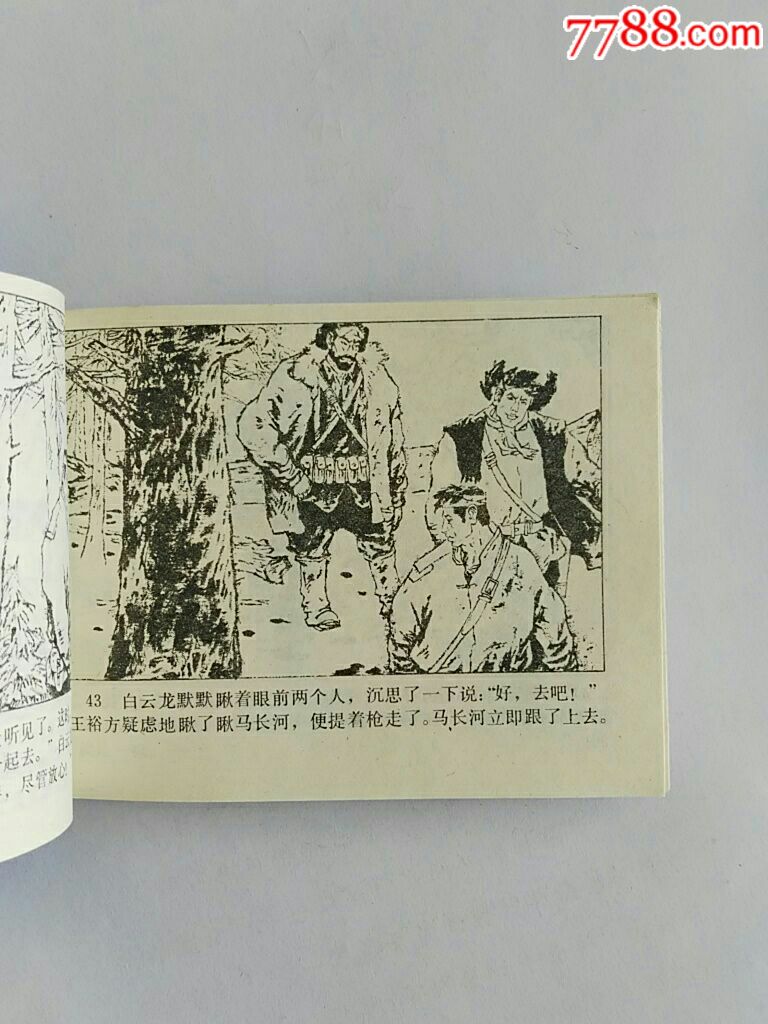 7788.com
听见了。
起去。"白云
，尽管放心
43 白云龙默默瞅着眼前两个人，沉思了一下说："好，去吧！"
王裕方疑虑地瞅了瞅马长河，便提着枪走了。马长河立即跟了上去。